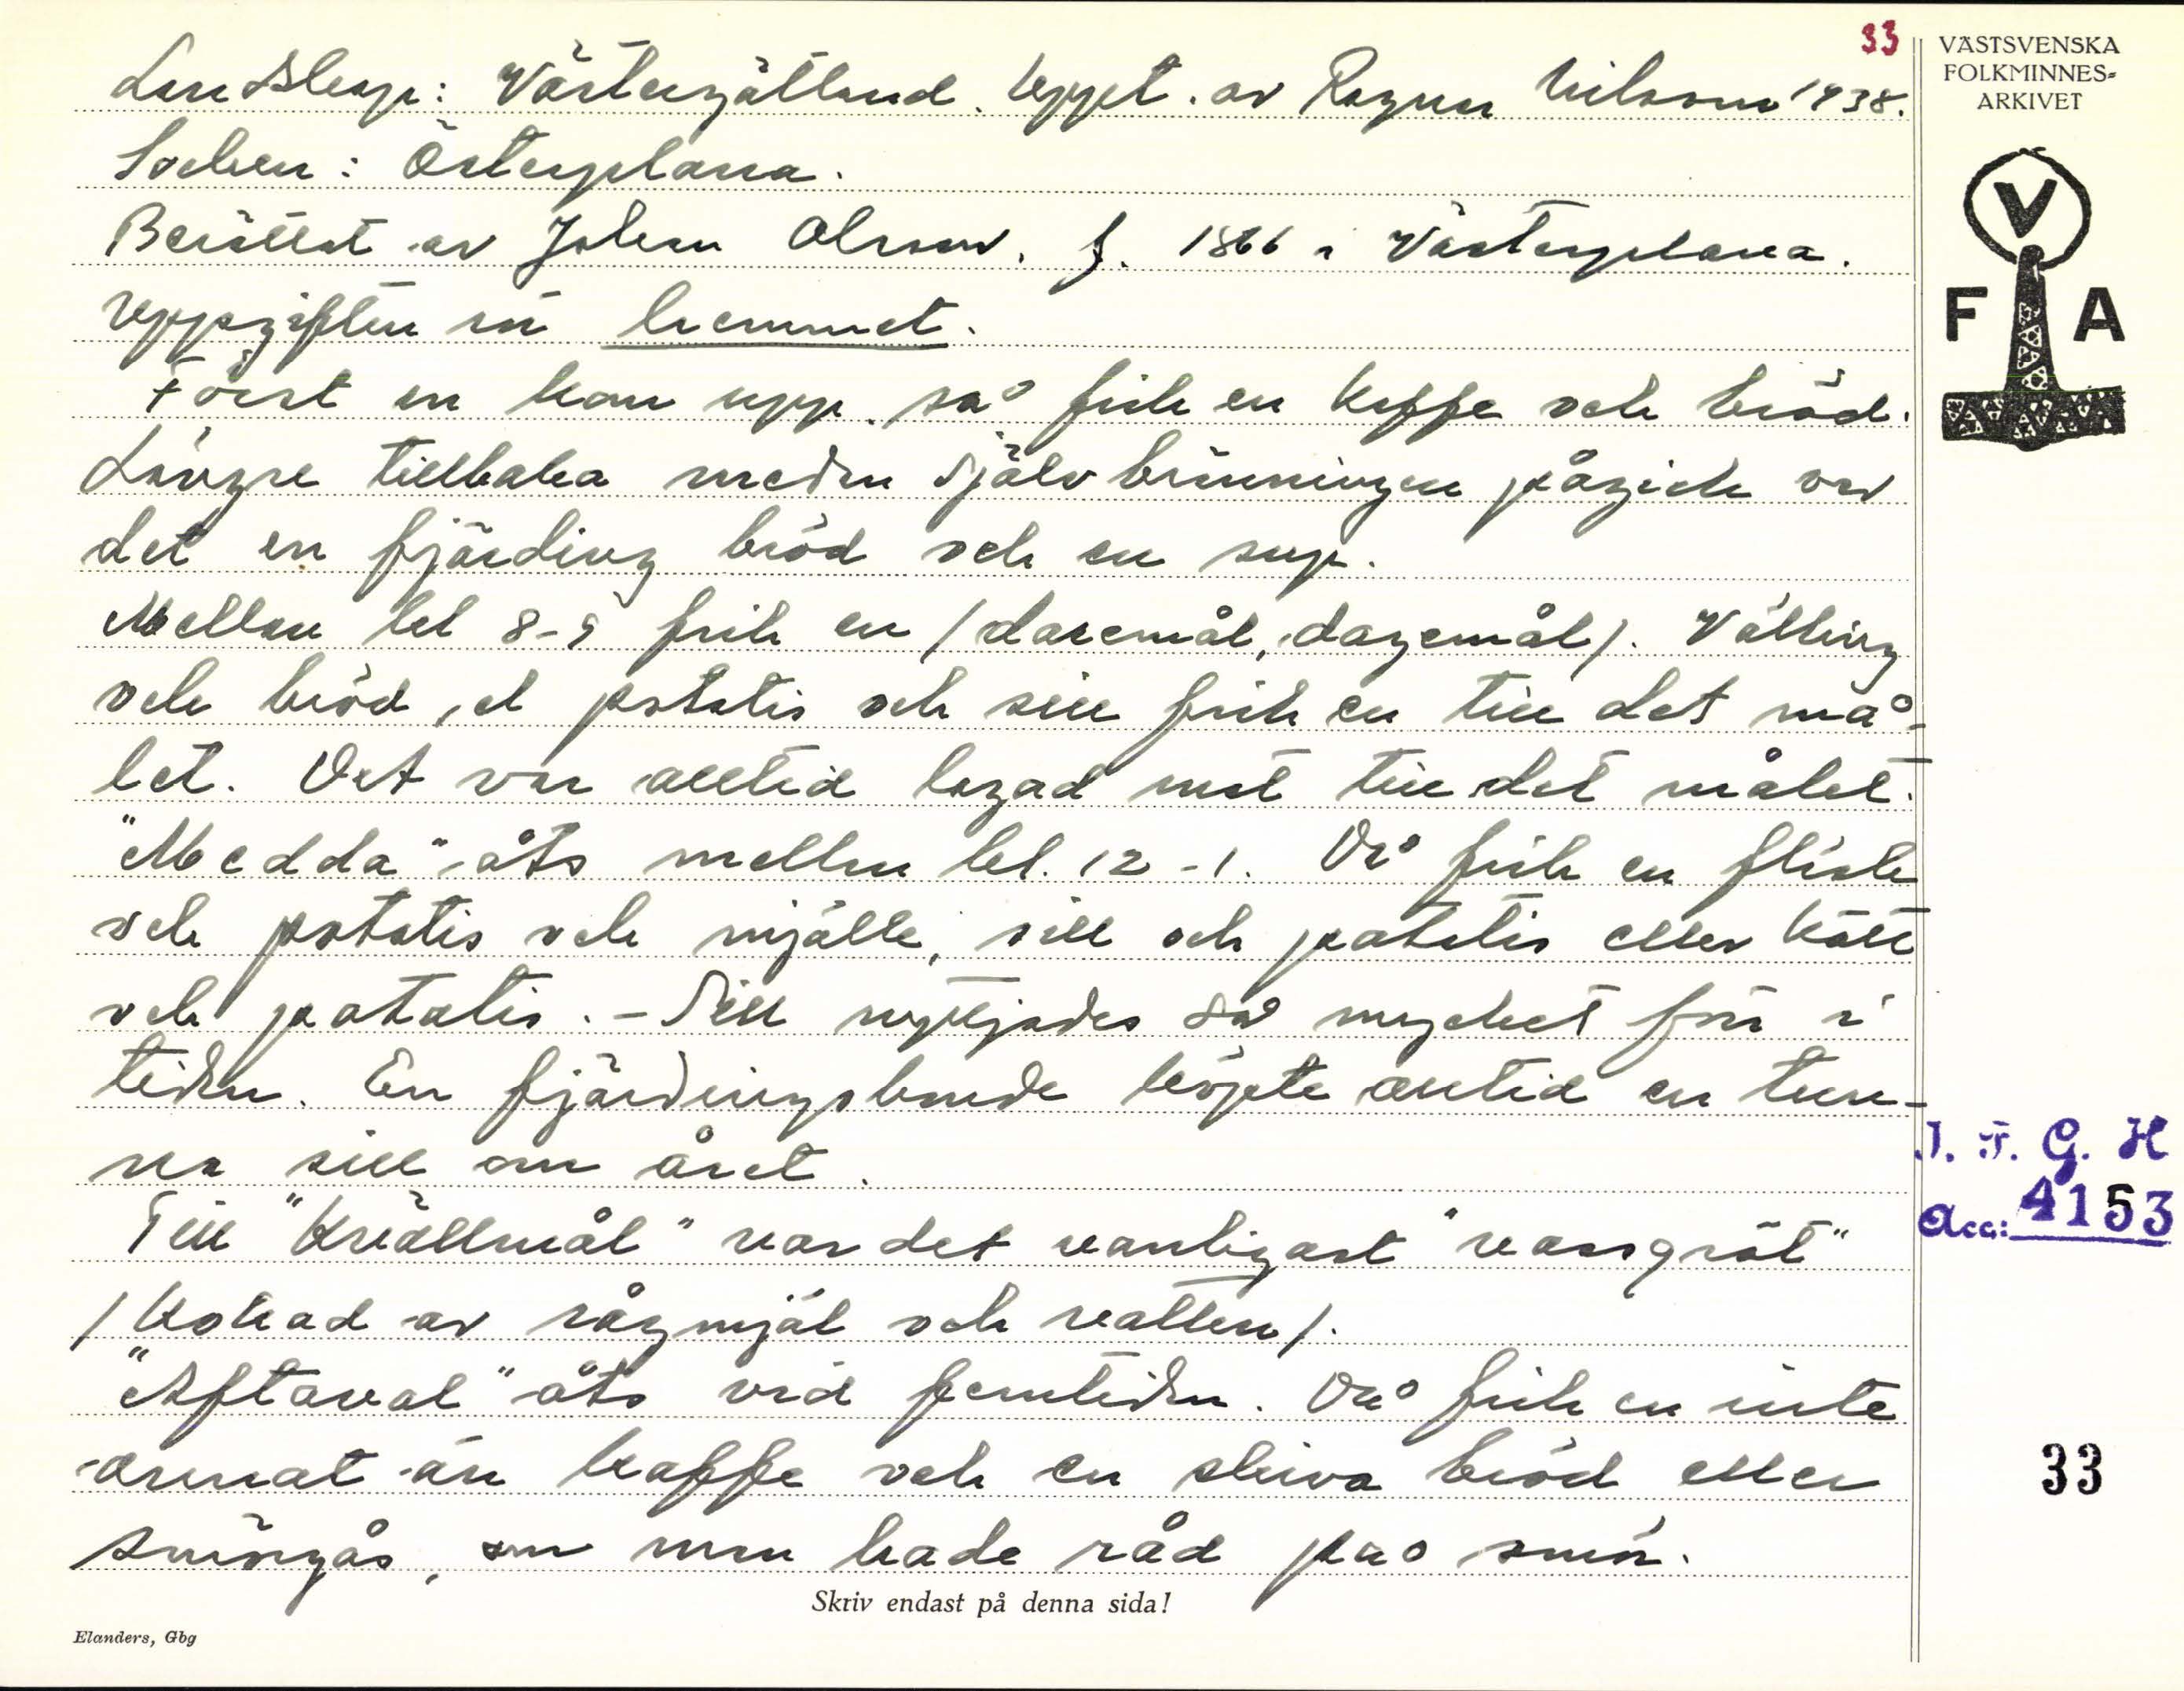 33
VÄSTSVENSKA
FOLKMINNES=
ARKIVET
V
F A
Landskap: Västergötland. Uppt. av Ragnar Nilsson 1938.
Socken: Österplana.
Berättat av Johan Olsson. f. 1866 i Västerplana.
Uppgiften är hemmet.
Först en kom upp så fick en kaffe och bröd.
Längre tillbaka medan självbränningen pågick var
det en fjärding bröd och en sup.
Mellan kl 8-9 fick en /daremål, dagemål/. Välling
och bröd, el potatis och sill fick en till det må-
let. Det var alltid lagad mat till det målet.
"Medda" åts mellan kl. 12-1. Då fick en fläsk
och potatis och mjölk, sill och potatis eller kött
och potatis. - Sill nyttjades så mycket förr i
tiden. En fjärdingsbonde köpte alltid en tun-
na sill om året.
Till "Kvällmål" var det vanligast "vassgröt"
/kokad av rågmjöl och vatten/.
"Aftaval" åts vid femtiden. Då fick en inte
annat än kaffe och en skiva bröd eller
smörgås, om man hade råd på smör.
I. F. G. H
Acc: 4153
33
Skriv endast på denna sida!
Elanders, Gbg